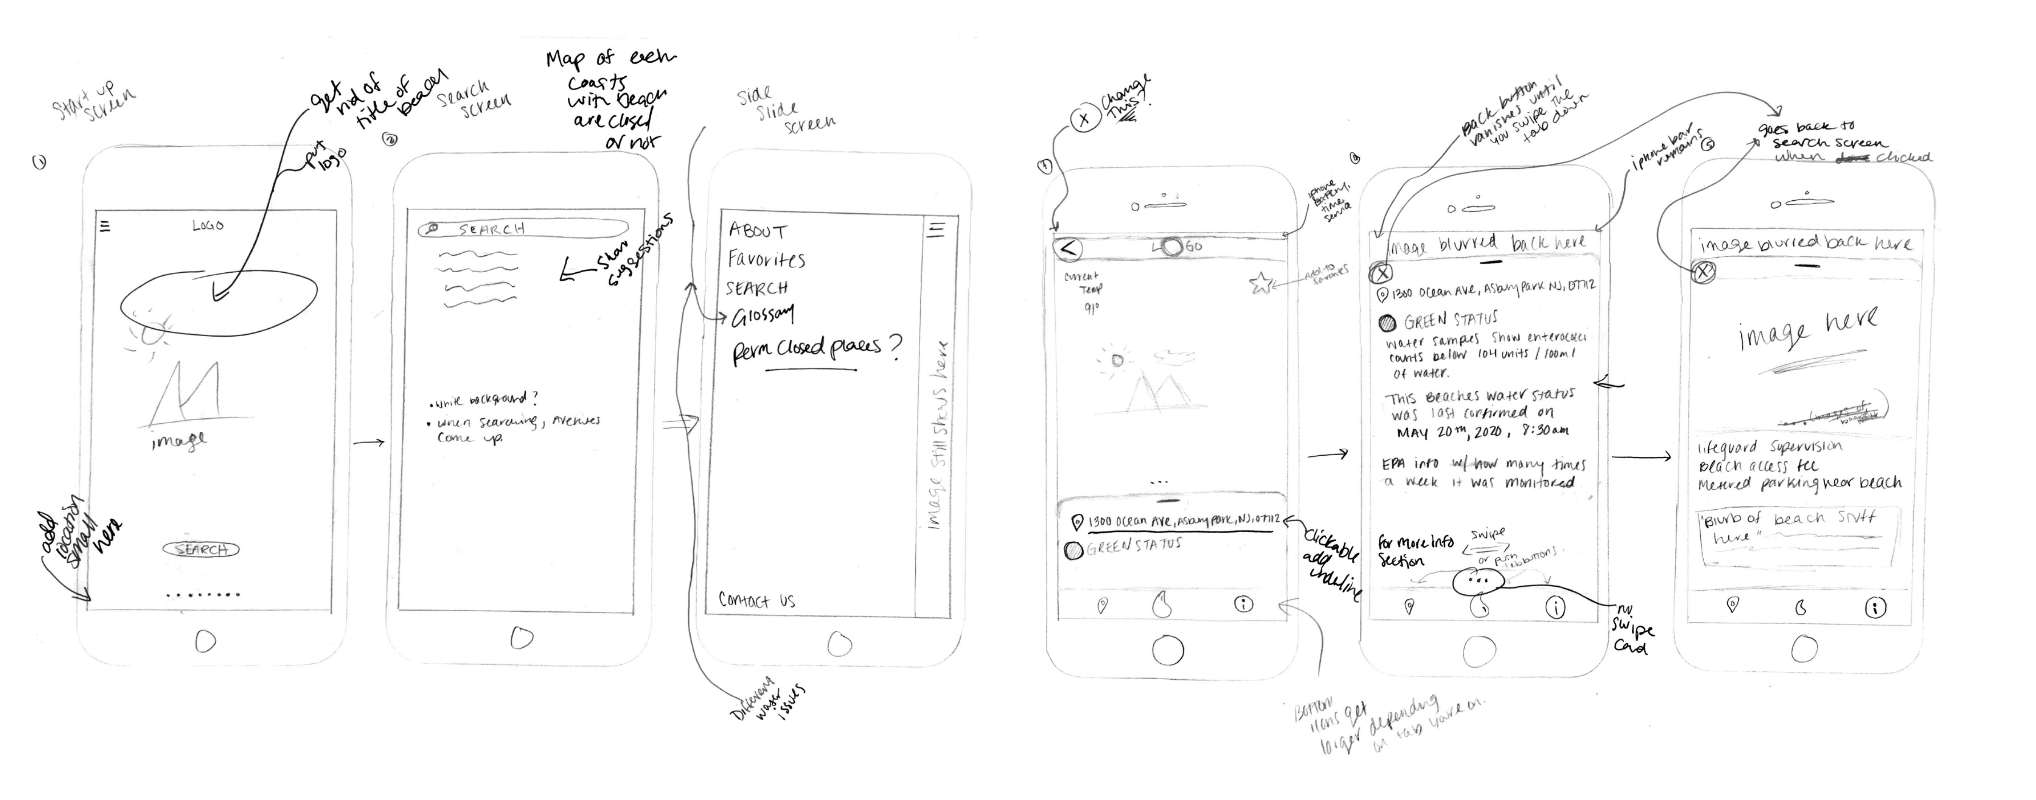 Start up
screen
①
get
rid of
title of
beach
put
logo
LOGO
image
SEARCH
add
location
small
here
②
Search
screen
Map of each
coasts
with beach
are closed
or not
SEARCH
Show
suggestions
• white background?
• when searching, avenues
come up.
Side
Slide
screen
ABOUT
Favorites
SEARCH
Glossary
perm closed places?
Contact us
image still shows here
Different
water
issues
X
Change
This?
iphone
battery,
time
LOGO
Current
Temp
91°
Add to
favorites
...
1300 Ocean Ave, Asbury Park, NJ, 07712
GREEN STATUS
Clickable
add
underline
i
Bottom
icons get
larger depending
on tab you're on.
Back button
vanishes until
you swipe the
tab down
iphone bar
remains
image blurred back here
X
1300 Ocean Ave, Asbury Park NJ, 07712
GREEN STATUS
water samples show enterococci
counts below 104 units / 100ml
of water.
This Beaches water status
was last confirmed on
MAY 20th, 2020, 8:30am
EPA info w/ how many times
a week it was monitored
for more info
section
swipe
or push
buttons
...
i
swipe
card
⑤
goes back to
search screen
when clicked
image blurred back here
X
image here
lifeguard supervision
Beach access fee
Metered parking near beach
"Blurb of beach stuff
here"
i